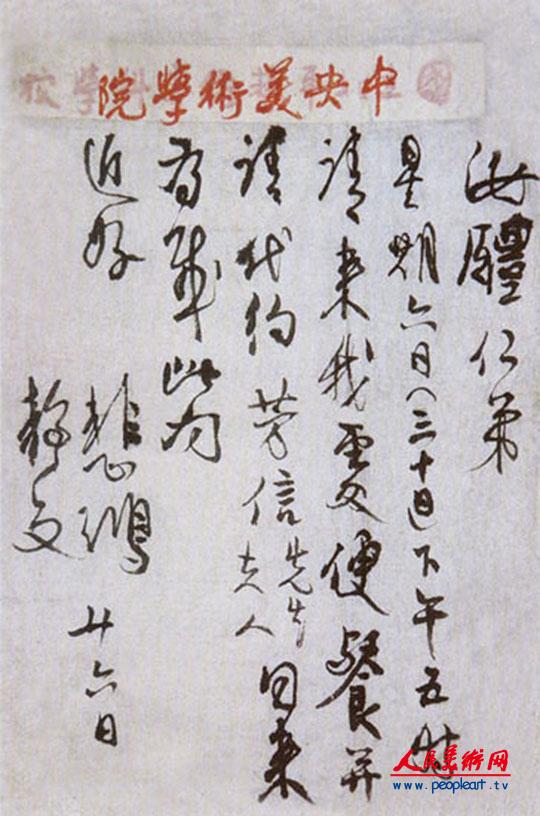 中央美術學院
仁弟
星期六日(三十日)下午五時
請來我處便餐并
請代約芳信先生夫人同來
為 此问
近好
悲鴻
靜文
廿六日
人民美術网
www.peopleart.tv